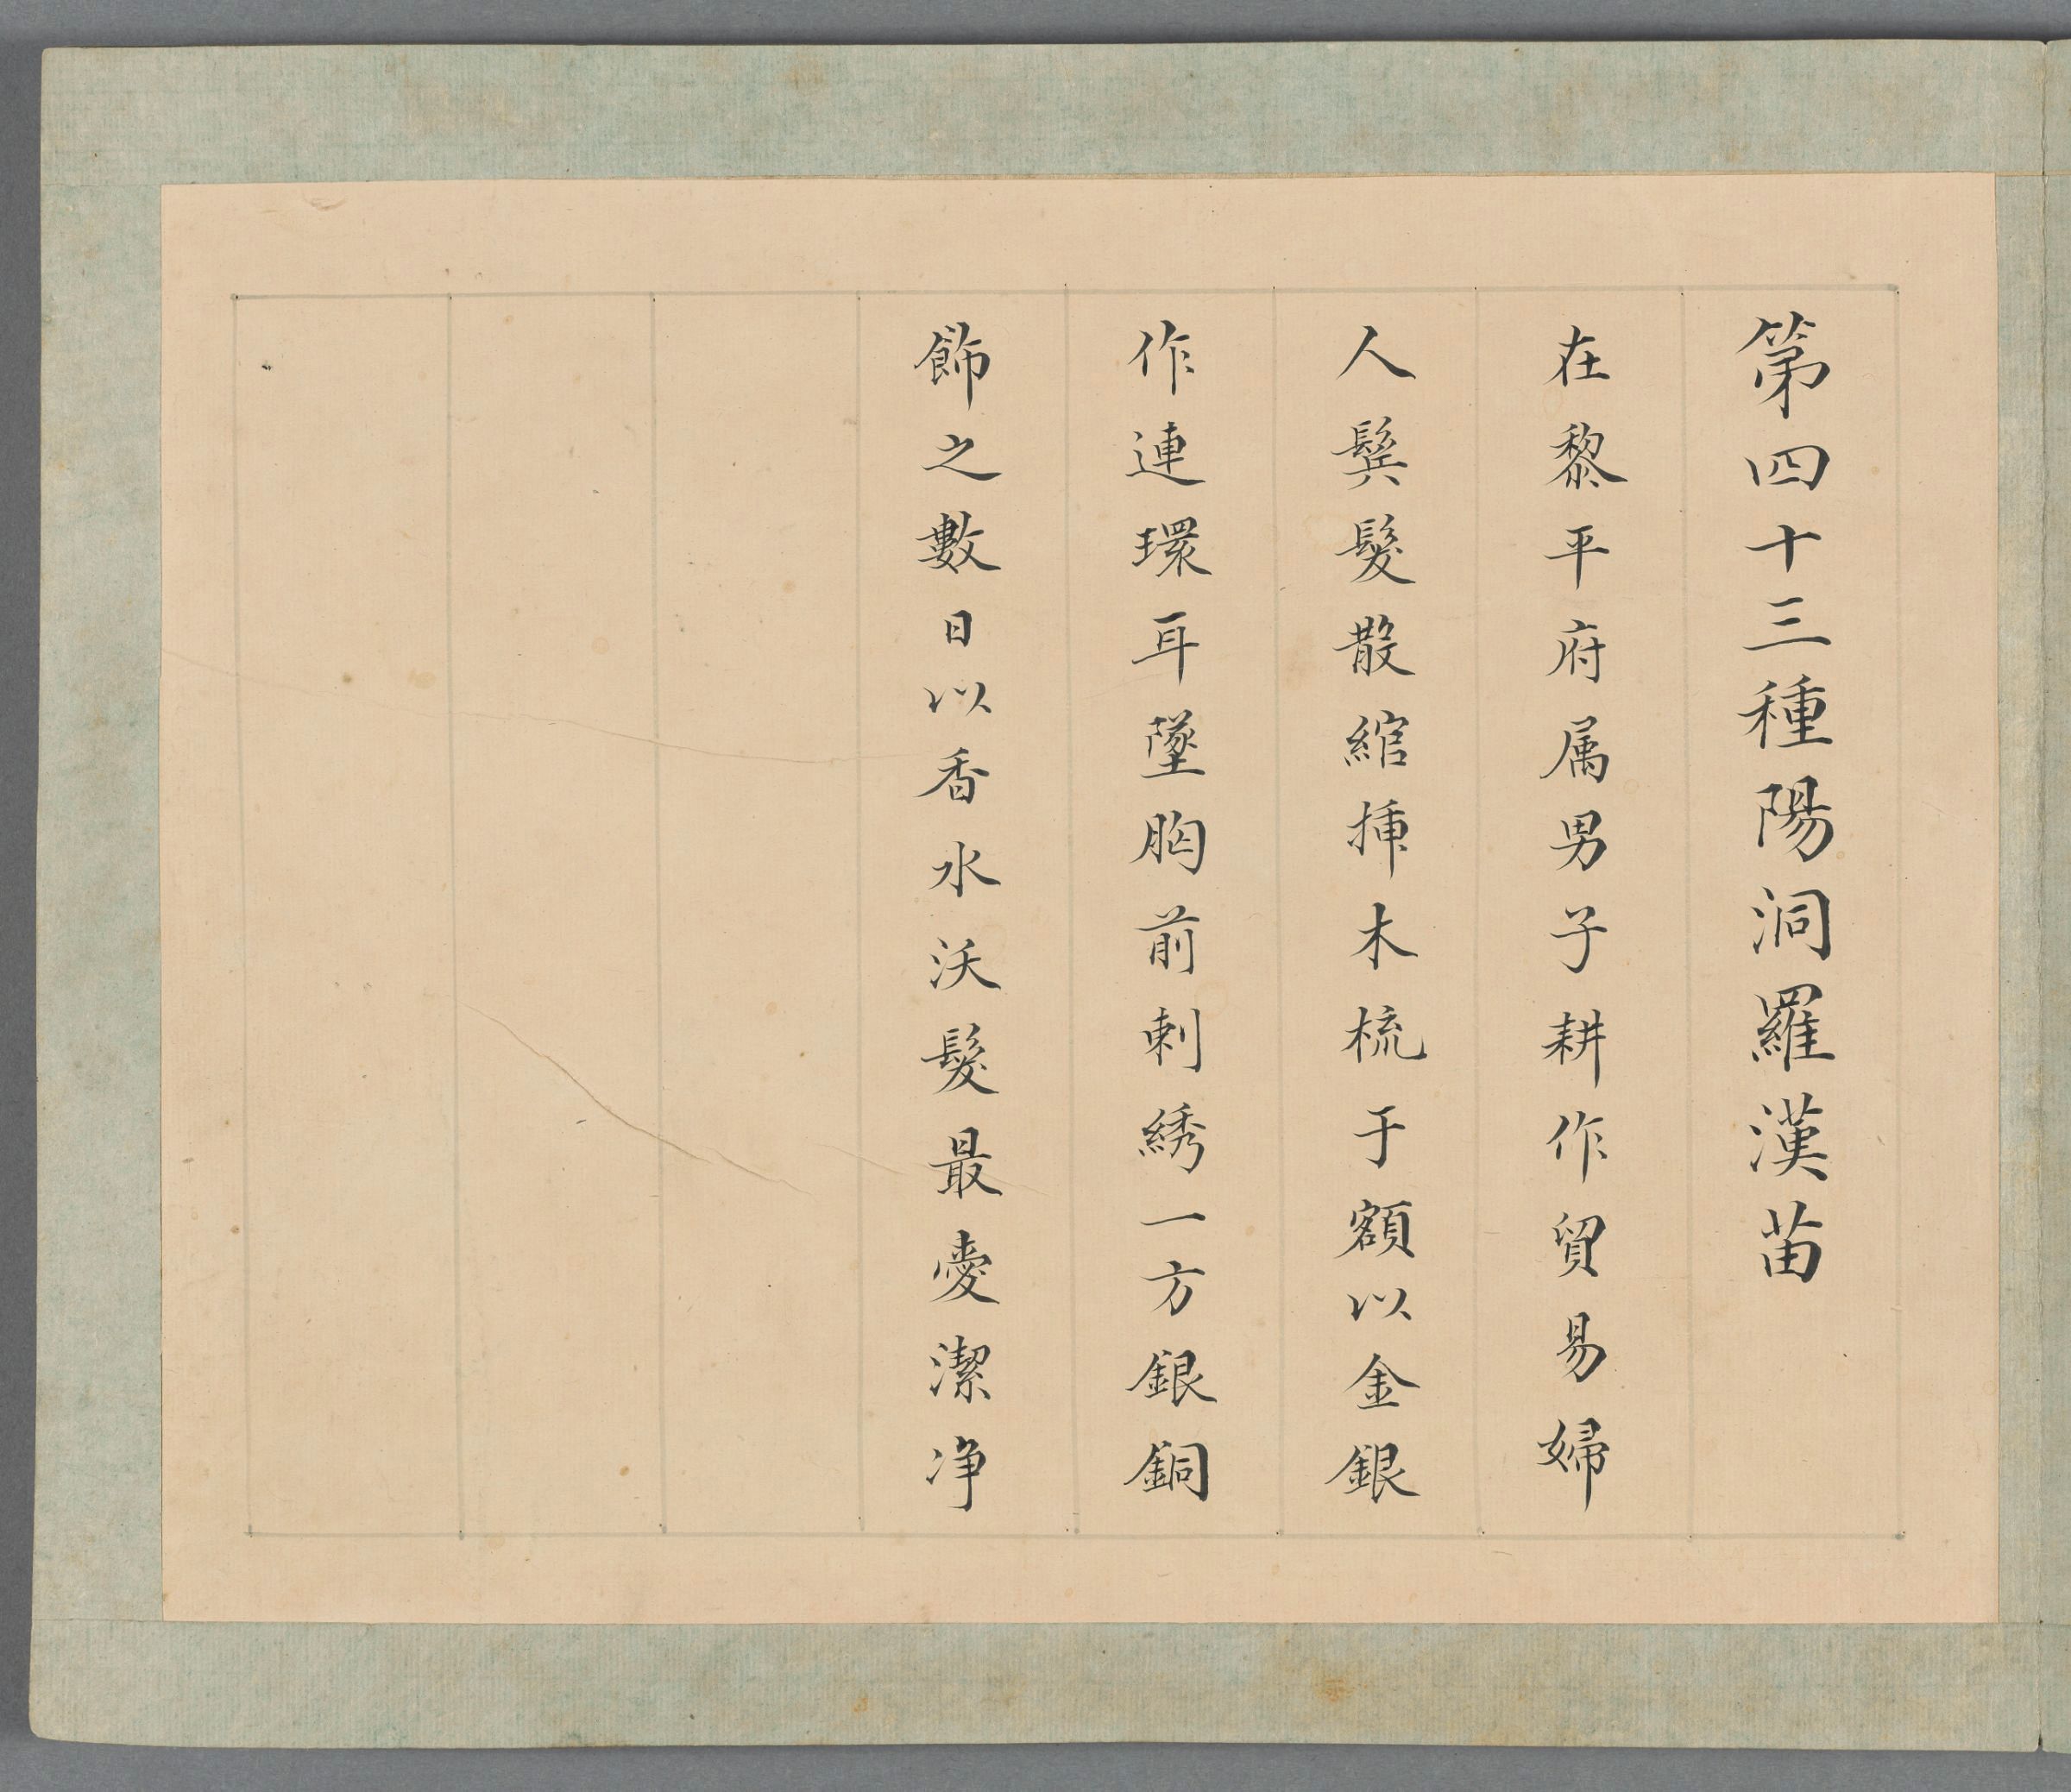 第四十三種陽洞羅漢苗
在黎平府属男子耕作貿易婦
人鬂髮散綰揷木梳于額以金銀
作連環耳墜胸前刺綉一方銀銅
飾之數日以香水沃髮最愛潔净